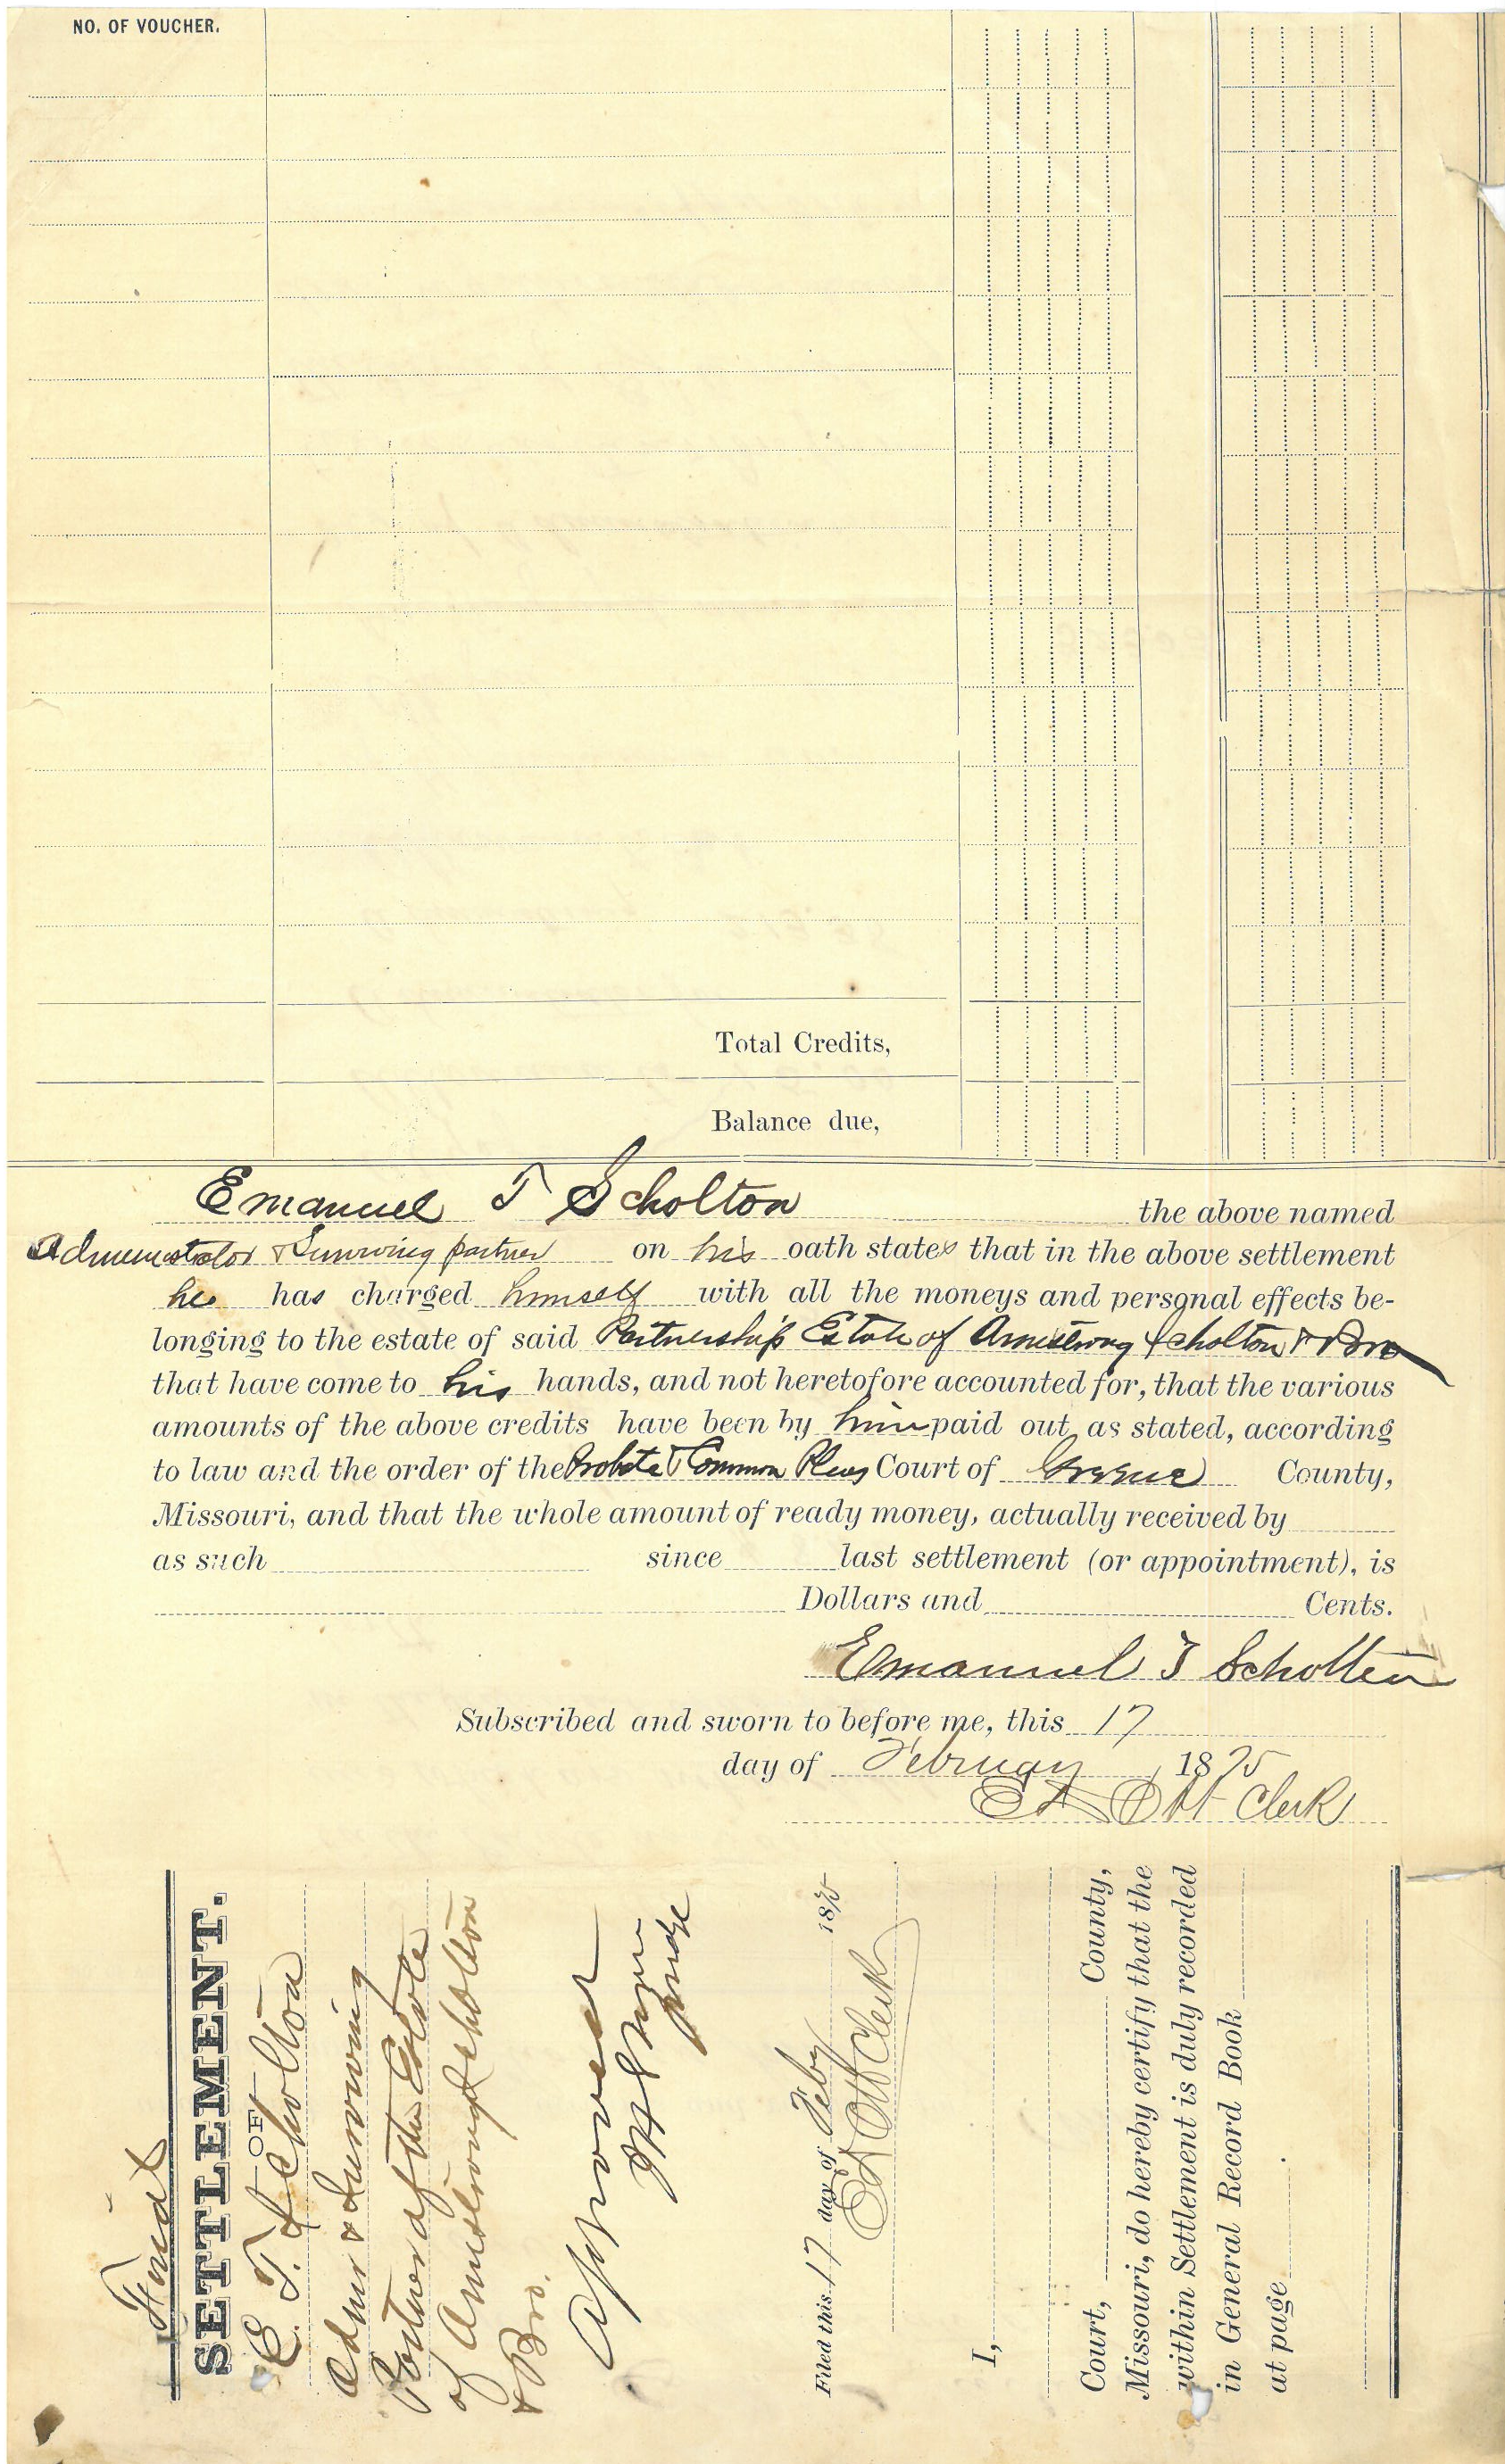 NO. OF VOUCHER.
Total Credits,
Balance due,
Emanuel T Scholton the above named
Administrator & Surviving partner on his oath states that in the above settlement
he has charged himself with all the moneys and personal effects be-
longing to the estate of said Partnership Estate of Armstrong Scholton & Bro
that have come to his hands, and not heretofore accounted for, that the various
amounts of the above credits have been by him paid out as stated, according
to law and the order of the Probate & Common Pleas Court of Greene County,
Missouri, and that the whole amount of ready money, actually received by
as such since last settlement (or appointment), is
Dollars and Cents.
Emanuel T Scholten
Subscribed and sworn to before me, this 17
day of February 1875
Ott Clerk
Final
SETTLEMENT.
OF
E. T. Scholton
Admr & Surviving
Partner of the Estate
of Armstrong Scholton
& Bro.
Approved
Judge
Filed this 17 day of Feby 1875
Ott Clerk
I,
Court, County,
Missouri, do hereby certify that the
within Settlement is duly recorded
in General Record Book
at page .